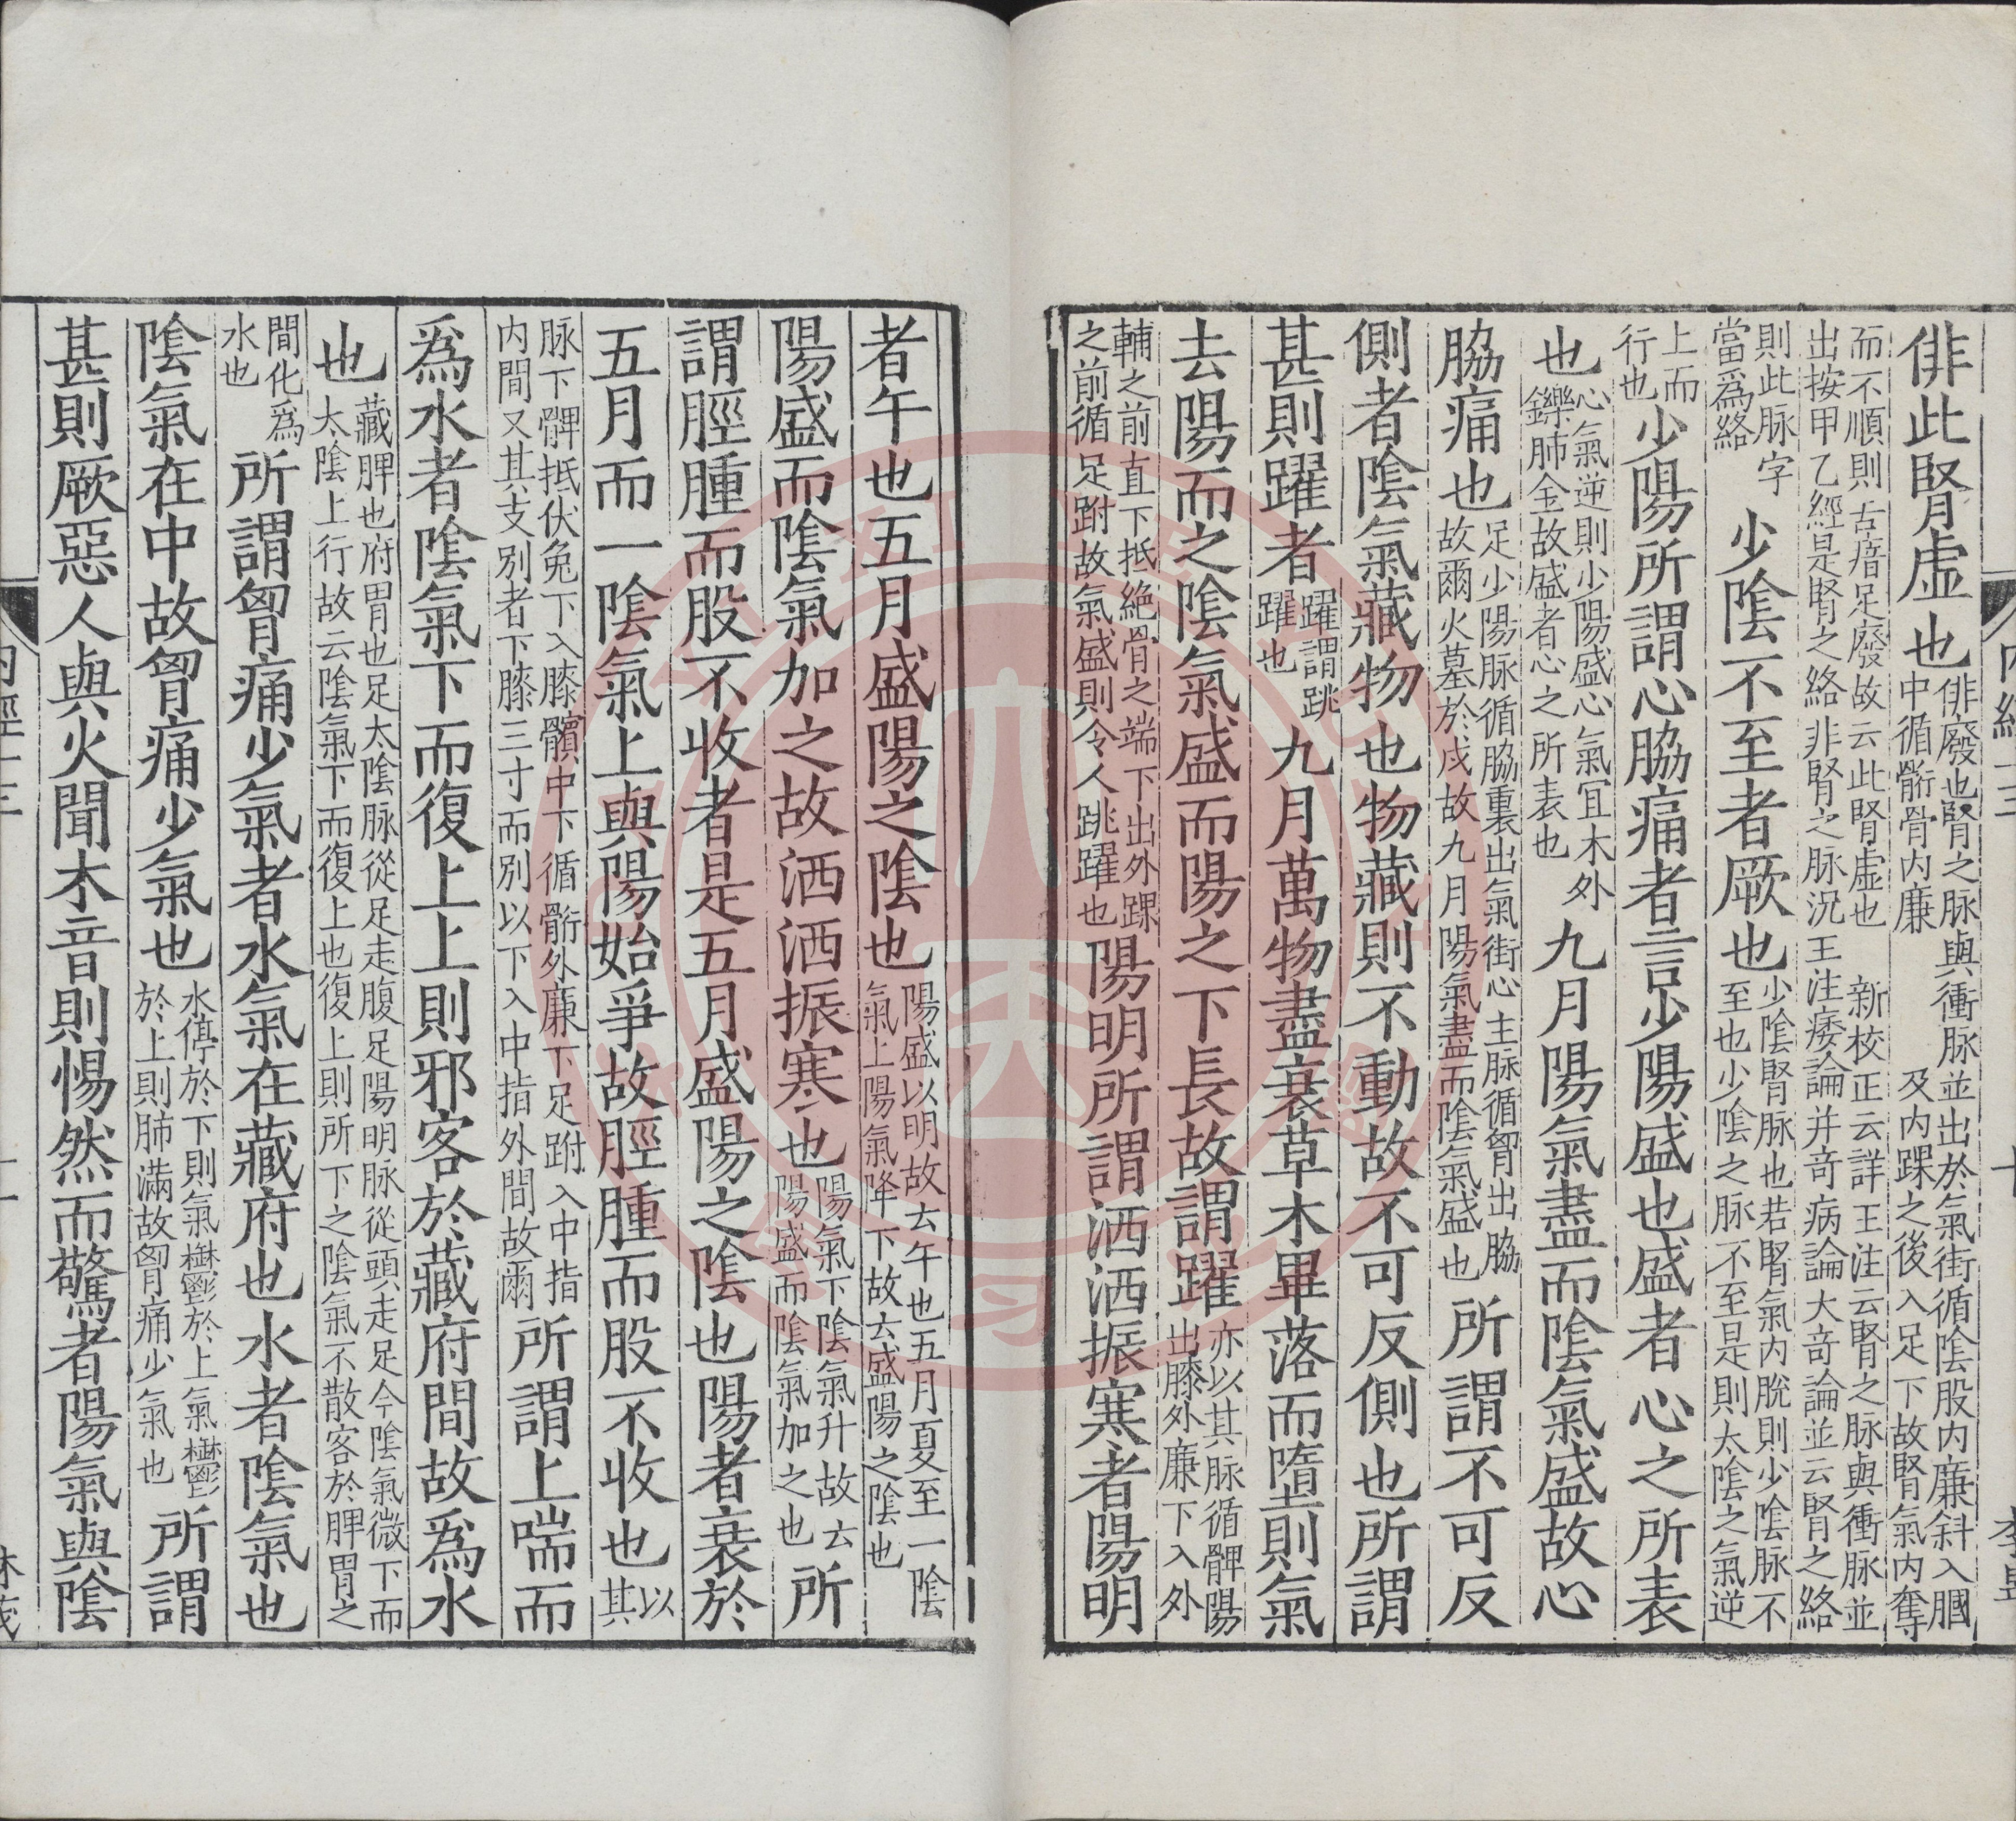 俳此腎虛也俳廢也腎之脉與衝脉並出於氣街循陰股内廉斜入膕中循䯒骨内廉及内踝之後入足下故腎氣内奪
而不順則舌瘖足廢故云此腎虛也新校正云詳王注云腎之脉與衝脉並出按甲乙經是腎之絡非腎之脉況王注痿論并奇病論大奇論並云腎之絡
則此脉字當爲絡少陰不至者厥也少陰腎脉也若腎氣内脫則少陰脉不至也少陰之脉不至是則太陰之氣逆
上而行也少陽所謂心脇痛者言少陽盛也盛者心之所表
也心氣逆則少陽盛心氣冝木外鑠肺金故盛者心之所表也九月陽氣盡而陰氣盛故心
脇痛也足少陽脉循脇裏出氣街心主脉循胷出脇故爾火墓於戍故九月陽氣盡而陰氣盛也所謂不可反
側者陰氣藏物也物藏則不動故不可反側也所謂
甚則躍者躍謂跳躍也九月萬物盡衰草木畢落而墮則氣
去陽而之陰氣盛而陽之下長故謂躍亦以其脉循髀陽出膝外廉下入外
輔之前直下抵絶骨之端下出外踝之前循足跗故氣盛則令人跳躍也陽明所謂洒洒振寒者陽明
者午也五月盛陽之陰也陽盛以明故云午也五月夏至一陰氣上陽氣降下故云盛陽之陰也
陽盛而陰氣加之故洒洒振寒也陽氣下陰氣升故云陽盛而陰氣加之也所
謂脛腫而股不收者是五月盛陽之陰也陽者衰於
五月而一陰氣上與陽始爭故脛腫而股不收也以其
脉下髀抵伏兔下入膝髕中下循䯒外廉下足跗入中指内間又其支別者下膝三寸而別以下入中指外間故爾所謂上喘而
爲水者陰氣下而復上上則邪客於藏府間故爲水
也藏脾也府胃也足太陰脉從足走腹足陽明脉從頭走足今陰氣微下而太陰上行故云陰氣下而復上也復上則所下之陰氣不散客於脾胃之
間化爲水也所謂胷痛少氣者水氣在藏府也水者陰氣也
陰氣在中故胷痛少氣也水停於下則氣欎於上氣欎於上則肺滿故胷痛少氣也所謂
甚則厥惡人與火聞木音則惕然而驚者陽氣與陰